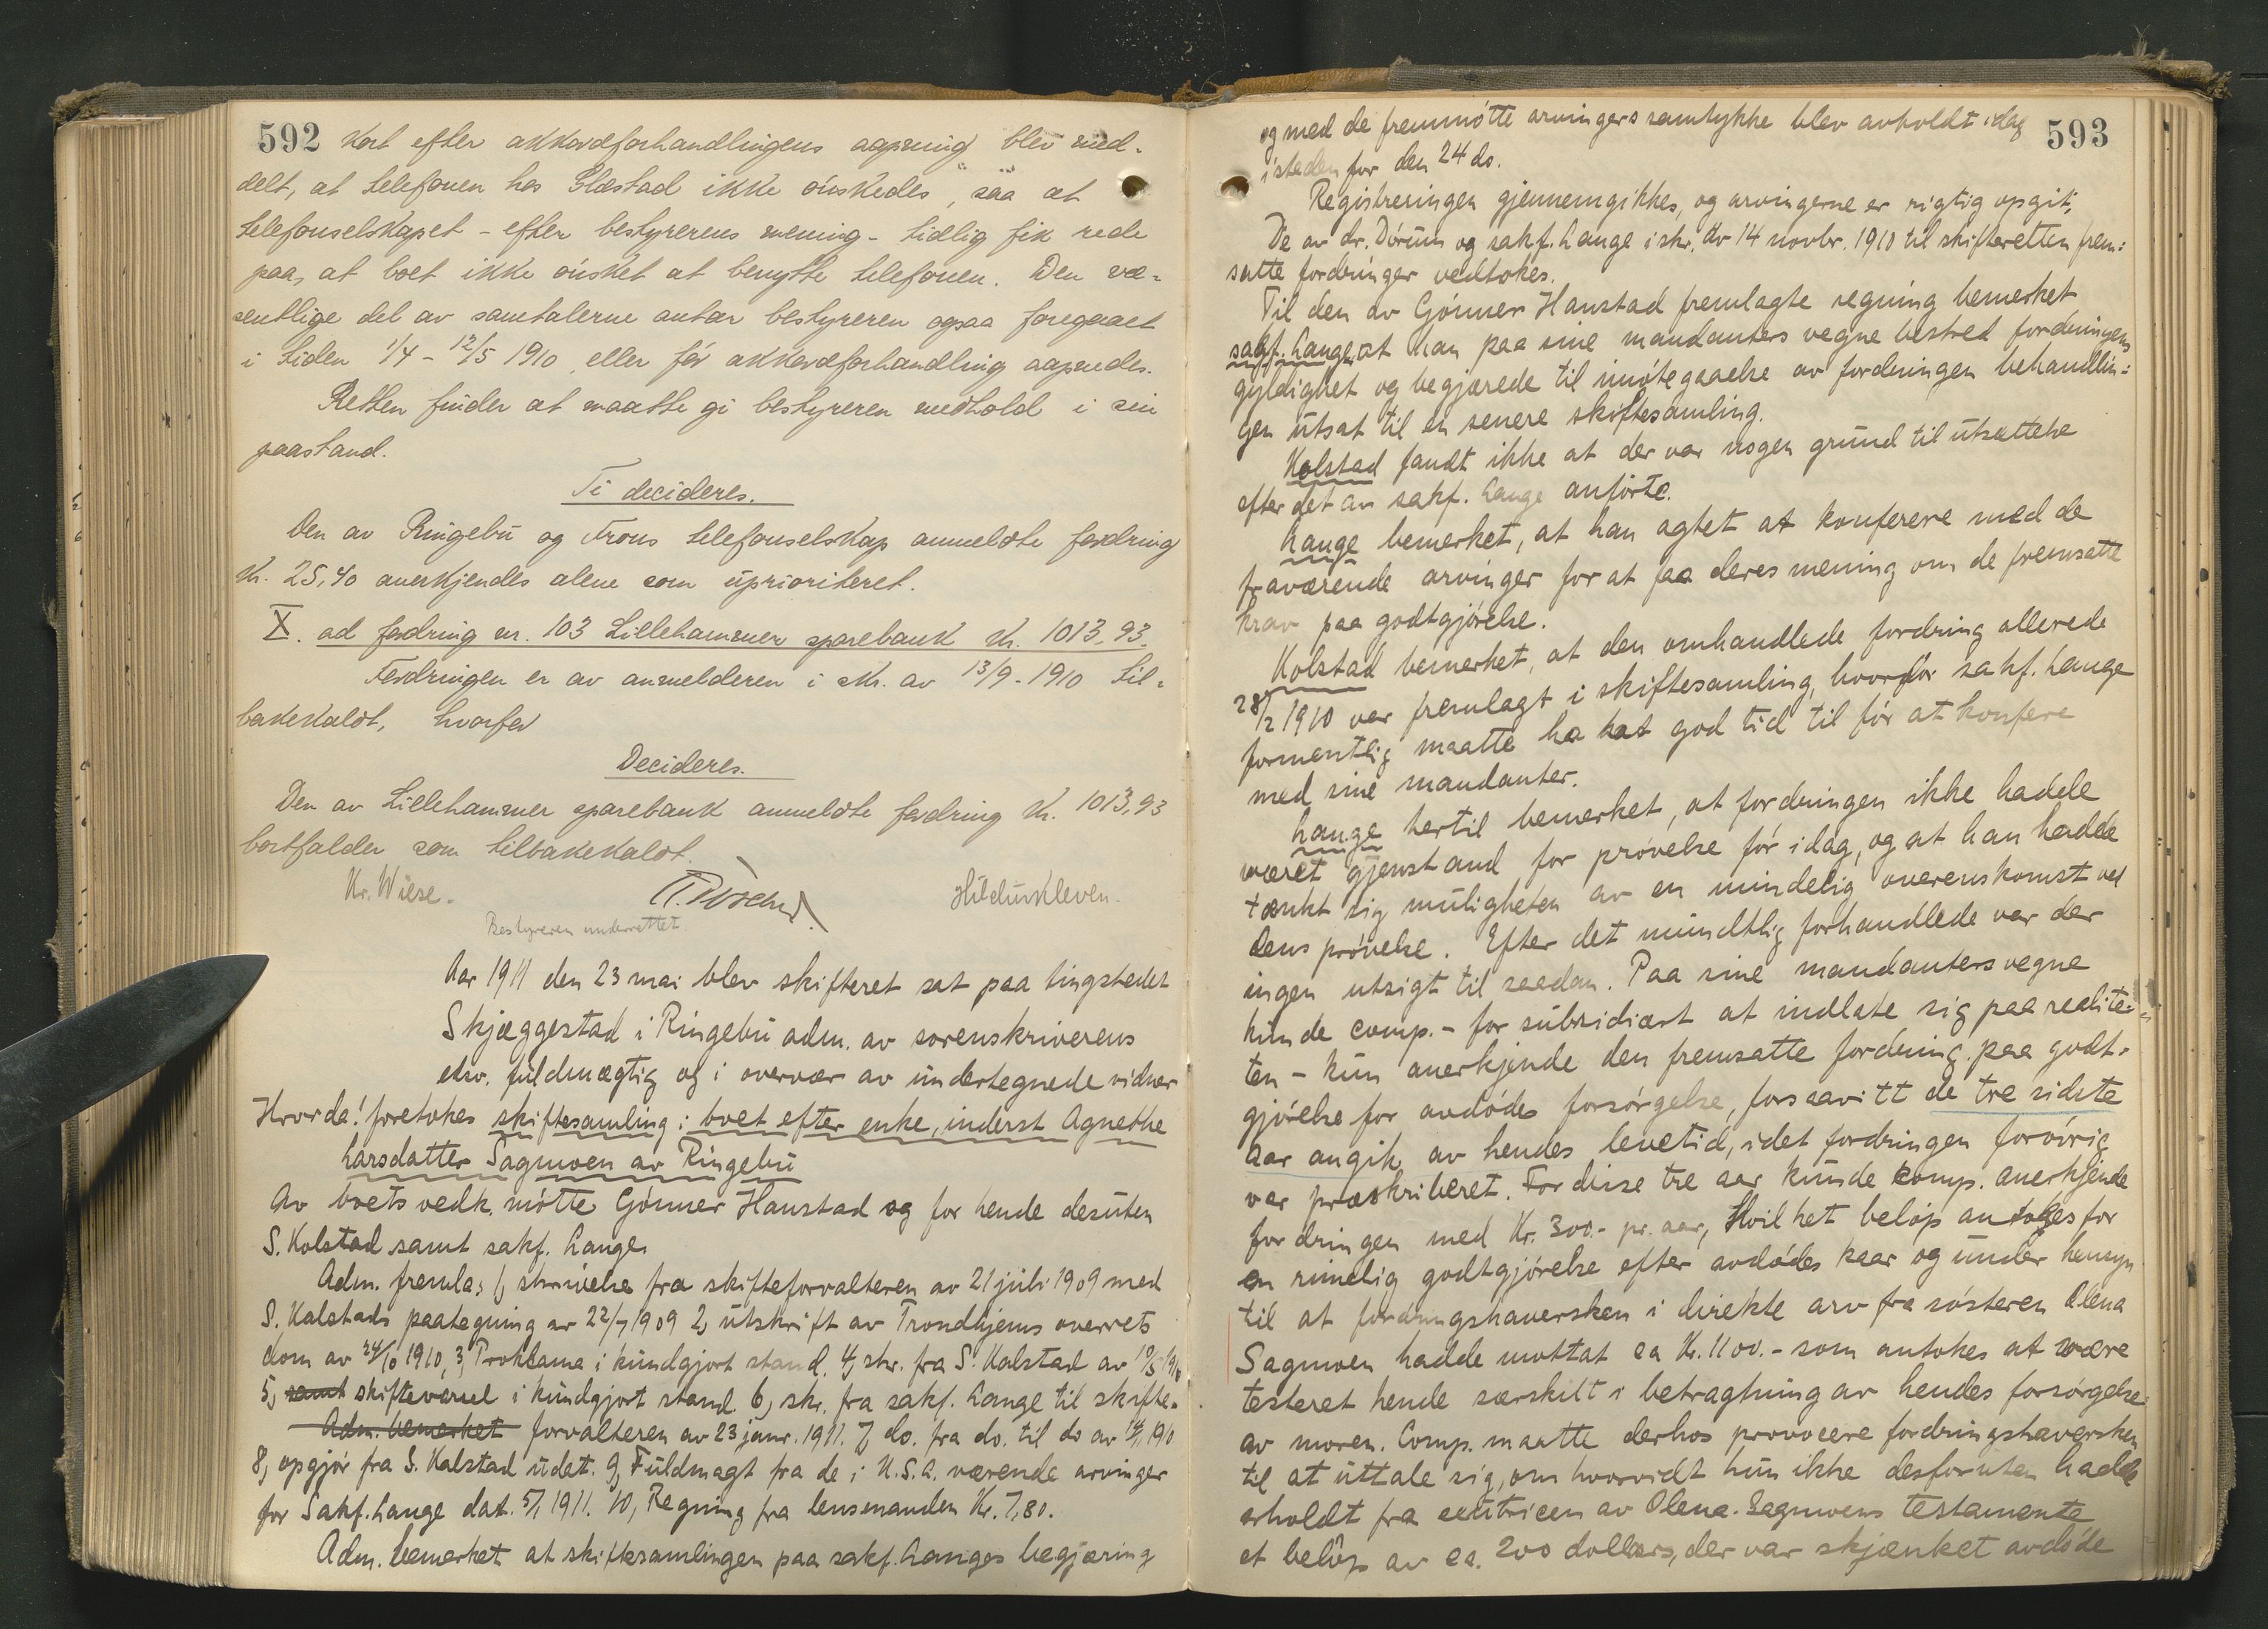 592 kort efter akkordforhandlingens aapning blev med-
delt, at telefonen hos Glæstad ikke ønskedes, saa at
telefonselskapet - efter bestyrerens mening - tidlig fik rede
paa, at boet ikke ønsket at benytte telefonen. Den væ-
sentlige del av samtalerne antar bestyreren ogsaa foregaaet
i tiden 1/4 - 12/5 1910, eller før akkordforhandling aapnedes.
Retten finder at maatte gi bestyreren medhold i sin
paastand.
Ti decideres.
Den av Ringebu og Frons telefonselskap anmeldte fordring
Kr. 25,40 anerkjendes alene som uprioriteret.
X. ad fordring nr. 103 Lillehammer sparebank Kr. 1013,93.
Fordringen er av anmelderen i skr. av 13/9 - 1910 til-
bakekaldt, hvorfor
Decideres.
Den av Lillehammer sparebank anmeldte fordring Kr. 1013,93
bortfalder som tilbakekaldt.
Kr. Wiese. Hildur Kleven.
Bestyreren underrettet.
Aar 1911 den 23 mai blev skifteret sat paa tingstedet
Skjæggestad i Ringebu adm. av sorenskriverens
edsv. fuldmægtig og i overvær av undertegnede vidner
Hvorda! foretokes skiftesamling i boet efter enke, inderst Agnethe
Larsdatter Sagmoen av Ringebu
Av boets vedk. møtte Gønner Hanstad og for hende desuten
S. Kolstad samt sakf. Lange.
Adm. fremla: 1, skrivelse fra skifteforvalteren av 21 juli 1909 med
S. Kolstads paategning av 22/7 1909 2, utskrift av Trondhjems overrets
dom av 24/10 1910, 3, Proklama i kundgjort stand. 4, skr. fra S. Kolstad av 10/5 1910
5, samt skiftevarsel i kundgjort stand. 6, skr. fra sakf. Lange til skifte-
Adm. bemerket forvalteren av 23 janr. 1911. 7, do. fra do. til do av 14/11 1910
8, opgjør fra S. Kolstad udat. 9, Fuldmagt fra de i U.S.A. værende arvinger
for Sakf. Lange dat. 5/1 1911. 10, Regning fra lensmanden Kr. 7,80.
Adm. bemerket at skiftesamlingen paa sakf. Langes begjæring
593
og med de fremmøtte arvingers samtykke blev avholdt idag
isteden for den 24 ds.
Registreringen gjennemgikkes, og arvingerne er rigtig opgit;
De av dr. Dørum og sakf. Lange i skr. av 14 novbr. 1910 til skifteretten frem-
satte fordringer vedtokes.
Til den av Gønner Hanstad fremlagte regning bemerket
sakf. Lange at han paa sine mandanters vegne bestred fordringens
gyldighet og begjærede til imøtegaaelse av fordringen behandlin-
gen utsat til en senere skiftesamling.
Kolstad fandt ikke at der var nogen grund til utsættelse
efter det av sakf. Lange anførte.
Lange bemerket, at han agtet at konferere med de
fraværende arvinger for at faa deres mening om de fremsatte
krav paa godtgjørelse.
Kolstad bemerket, at den omhandlede fordring allerede
28/2 1910 var fremlagt i skiftesamling, hvorfor sakf. Lange
formentlig maatte ha hat god tid til før at konfere
med sine mandanter.
Lange hertil bemerket, at fordringen ikke hadde
været gjenstand for prøvelse før idag, og at han hadde
tænkt sig muligheten av en mindelig overenskomst ved
dens prøvelse. Efter det mundtlig forhandlede var der
ingen utsigt til saadan. Paa sine mandanters vegne
kunde comp. - for subsidiært at indlate sig paa realite-
ten - kun anerkjende den fremsatte fordring paa godt-
gjørelse for avdødes forsørgelse, forsaavitt de tre sidste
aar angik av hendes levetid, idet fordringen forøvrig
var præskriberet. For disse tre aar kunde komp. anerkjende
fordringen med Kr. 300.- pr. aar, Hvilket beløp antoges for
en rimelig godtgjørelse efter avdødes kaar og under hensyn
til at fordringshaversken i direkte arv fra søsteren Olena
Sagmoen hadde mottat ca Kr. 1100.- som antokes at være
testeret hende særskilt i betragtning av hendes forsørgelse
av moren. Comp. maatte derhos provocere fordringshaversken
til at uttale sig, om hvorvidt hun ikke desforuten hadde
erholdt fra exutricen av Olena Sagmoens testamente
et beløp av ca. 200 dollars, der var skjænket avdøde